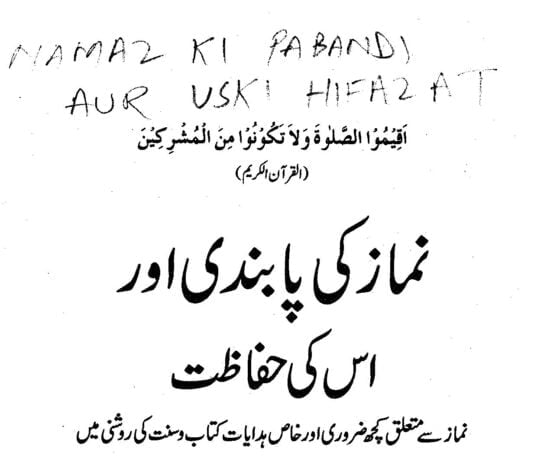 NAMAZ KI PABANDI
AUR USKI HIFAZAT
اَقِيْمُوا الصَّلٰوةَ وَلَا تَكُوْنُوْا مِنَ الْمُشْرِكِيْنَ
(القرآن الكريم)
نماز کی پابندی اور
اس کی حفاظت
نماز سے متعلق کچھ ضروری اور خاص ہدایات کتاب وسنت کی روشنی میں